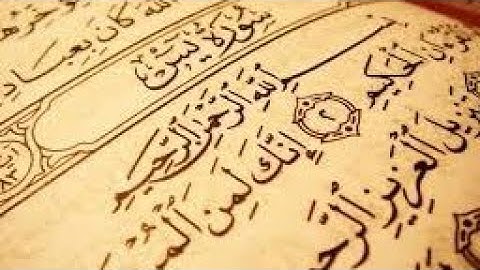 ٱللَّهَ كَانَ بِعِبَادِ
سُورَةُ يسٓ
بِسْمِ ٱللَّهِ ٱلرَّحْمَٰنِ ٱلرَّحِيمِ
ٱلْحَكِيمِ ٢ إِنَّكَ لَمِنَ ٱلْمُ
زِيلَ ٱلْعَزِيزِ ٱلرَّحِ